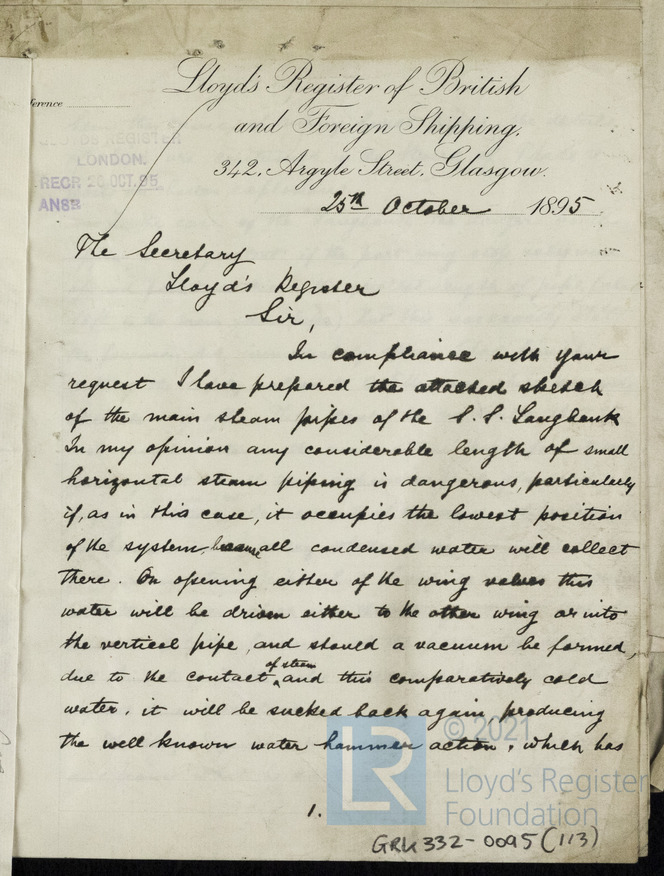 Lloyd's Register of British
and Foreign Shipping.
342, Argyle Street, Glasgow.
ference
LLOYDS REGISTER
LONDON.
RECR 26 OCT. 95
ANSR
25th October 1895
The Secretary
Lloyd's Register
Sir,
In compliance with your
request I have prepared the attached sketch
of the main steam pipes of the S.S. Langbank
In my opinion any considerable length of small
horizontal steam piping is dangerous, particularly
if, as in this case, it occupies the lowest position
of the system, because all condensed water will collect
there. On opening either of the wing valves this
water will be driven either to the other wing or into
the vertical pipe, and should a vacuum be formed,
due to the contact of steam and this comparatively cold
water, it will be sucked back again producing
the well known water hammer action, which has
1.
© 2021
LR
Lloyd's Register
Foundation
GRK332-0095(113)